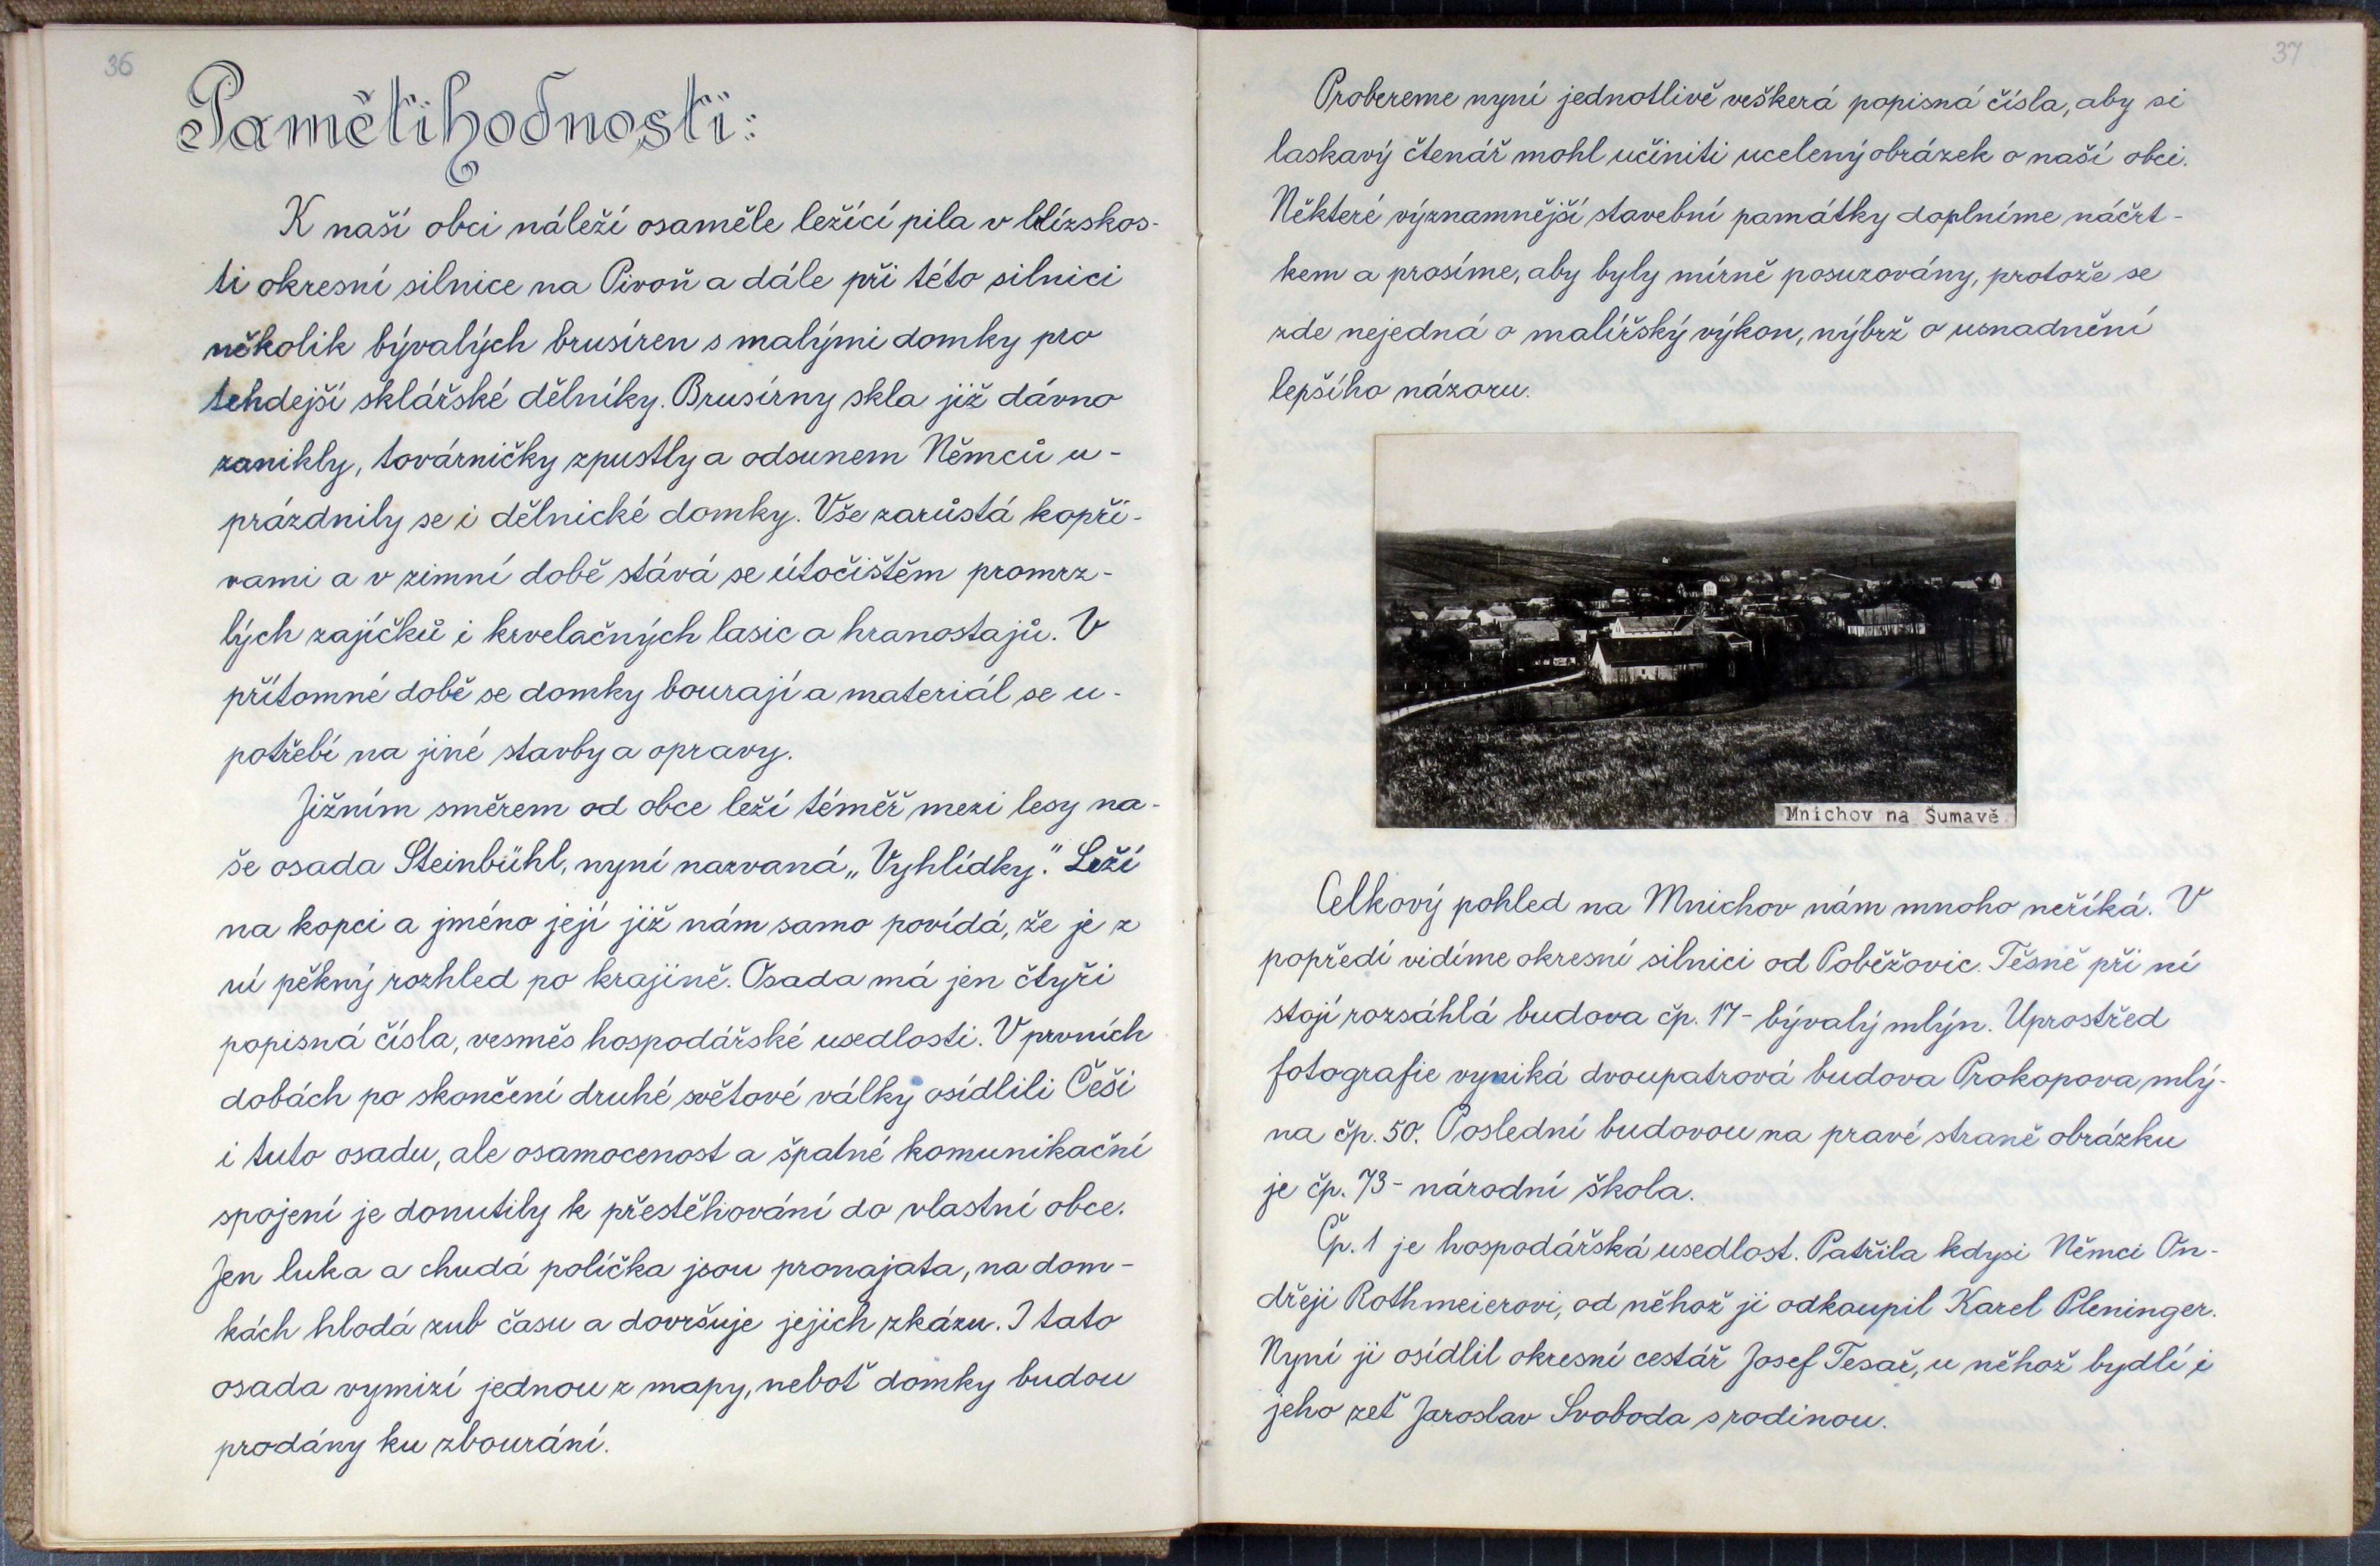 36
Pamětihodnosti:
K naší obci náleží osaměle ležící pila v blízskos-
ti okresní silnice na Pivoň a dále při této silnici
několik bývalých brusíren s malými domky pro
tehdejší sklářské dělníky. Brusírny skla již dávno
zanikly, továrničky zpustly a odsunem Němců u-
prázdnily se i dělnické domky. Vše zarůstá kopři-
vami a v zimní době stává se útočištěm promrz-
lých zajíčků i krvelačných lasic a hranostajů. V
přítomné době se domky bourají a materiál se u-
potřebí na jiné stavby a opravy.
Jižním směrem od obce leží téměř mezi lesy na-
še osada Steinbühl, nyní nazvaná „Vyhlídky." Leží
na kopci a jméno její již nám samo povídá, že je z
ní pěkný rozhled po krajině. Osada má jen čtyři
popisná čísla, vesměs hospodářské usedlosti. V prvních
dobách po skončení druhé světové války osídlili Češi
i tuto osadu, ale osamocenost a špatné komunikační
spojení je donutily k přestěhování do vlastní obce.
Jen luka a chudá políčka jsou pronajata, na dom-
kách hlodá zub času a dovršuje jejich zkázu. I tato
osada vymizí jednou z mapy, neboť domky budou
prodány ku zbourání.
37
Probereme nyní jednotlivě veškerá popisná čísla, aby si
laskavý čtenář mohl učiniti ucelený obrázek o naší obci.
Některé významnější stavební památky doplníme náčrt-
kem a prosíme, aby byly mírně posuzovány, protože se
zde nejedná o malířský výkon, nýbrž o usnadnění
lepšího názoru.
Mnichov na Šumavě
Celkový pohled na Mnichov nám mnoho neříká. V
popředí vidíme okresní silnici od Poběžovic. Těsně při ní
stojí rozsáhlá budova čp. 17 - bývalý mlýn. Uprostřed
fotografie vyniká dvoupatrová budova Prokopova mlý-
na čp. 50. Poslední budovou na pravé straně obrázku
je čp. 73 - národní škola.
Čp. 1 je hospodářská usedlost. Patřila kdysi Němci On-
dřeji Rothmeierovi, od něhož ji odkoupil Karel Pleninger.
Nyní ji osídlil okresní cestář Josef Tesař, u něhož bydlí i
jeho zeť Jaroslav Svoboda s rodinou.